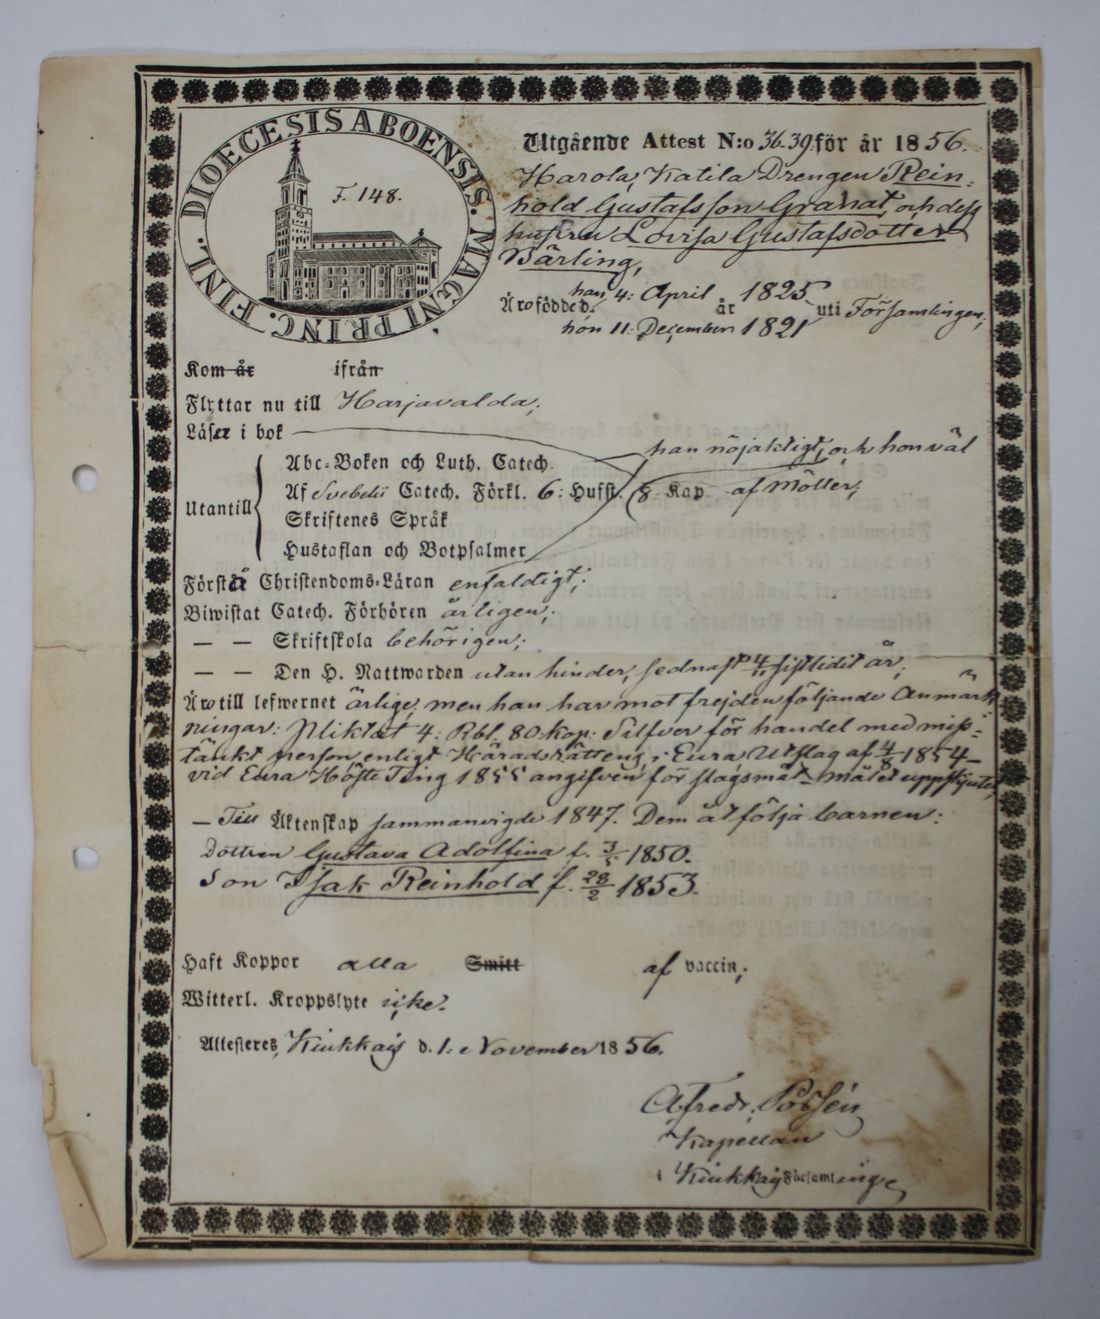 DIOECESIS ABOENSIS. MAGNI PRINC. FINL.
F. 148.
Utgående Attest N:o 36.39. för år 1856.
Harola, Katila Drengen Rein-
hold Gustafsson Granat, och dess
hustru Lovisa Gustafsdotter
Bärling,
han 4: April 1825
Äro född e d. år uti Församlingen;
hon 11: December 1821
Kom år ifrån
Flyttar nu till Harjavalda;
Läser i bok han nöjaktigt, och hon väl
Abc-Boken och Luth. Catech.
Utantill Af Svebelii Catech. Förkl. 6: Hufst. 8 Kap. af Möller;
Skriftenes Språk
Hustaflan och Botpsalmer
Förstå Christendoms-Läran enfaldigt;
Biwistat Catech. Förhören årligen;
— — Skriftskola behörigen;
— — Den H. Nattwarden utan hinder, sednast 4/11 sistlidit år;
Äro till lefwernet ärlige, men han har mot frejden följande Anmärk-
ningar: Pliktat 4: Rbl. 80 kop: Silfver för handel med miss-
tänkt person enligt Häradsrättens i Eura Utslag af 4/8 1854 —
vid Eura Höste Ting 1855 angifven för slagsmål — målet uppskjutet,
— Till Äktenskap sammanvigde 1847. Dem åtfölja barnen:
Dottren Gustava Adolfina f. 3/5 1850.
Son Isak Reinhold f. 28/2 1853.
Haft Koppor alla Smitt af vaccin;
Witterl. Kroppslyte icke.
Attesteres, Kiukkais d. 1: November 1856.
Alfredr.
Kapellan
i Kiukkais Församlinge